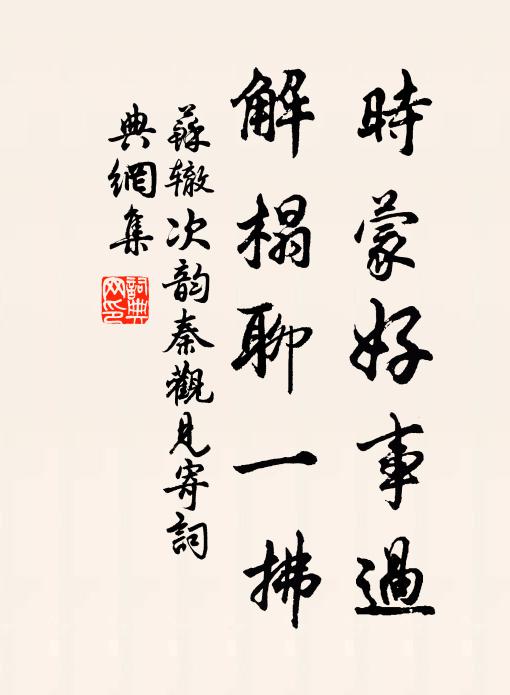 時蒙好事過
解榻聊一拂
蘇轍次韵秦觀見寄詞
典網集
詞典
网印